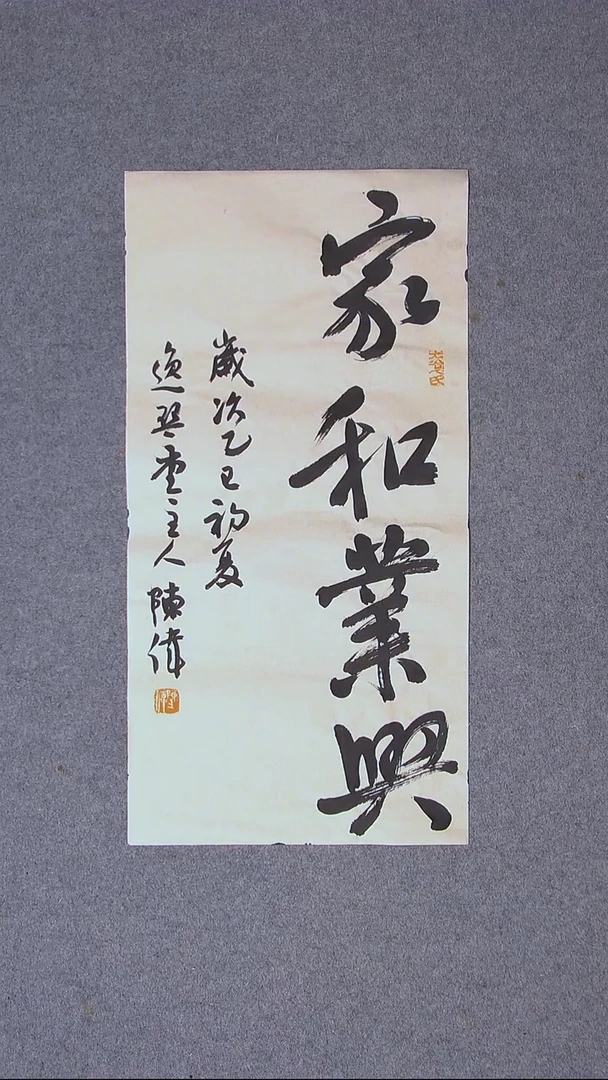 家和業興
歲次乙巳初夏
逸琴堂主人陳偉